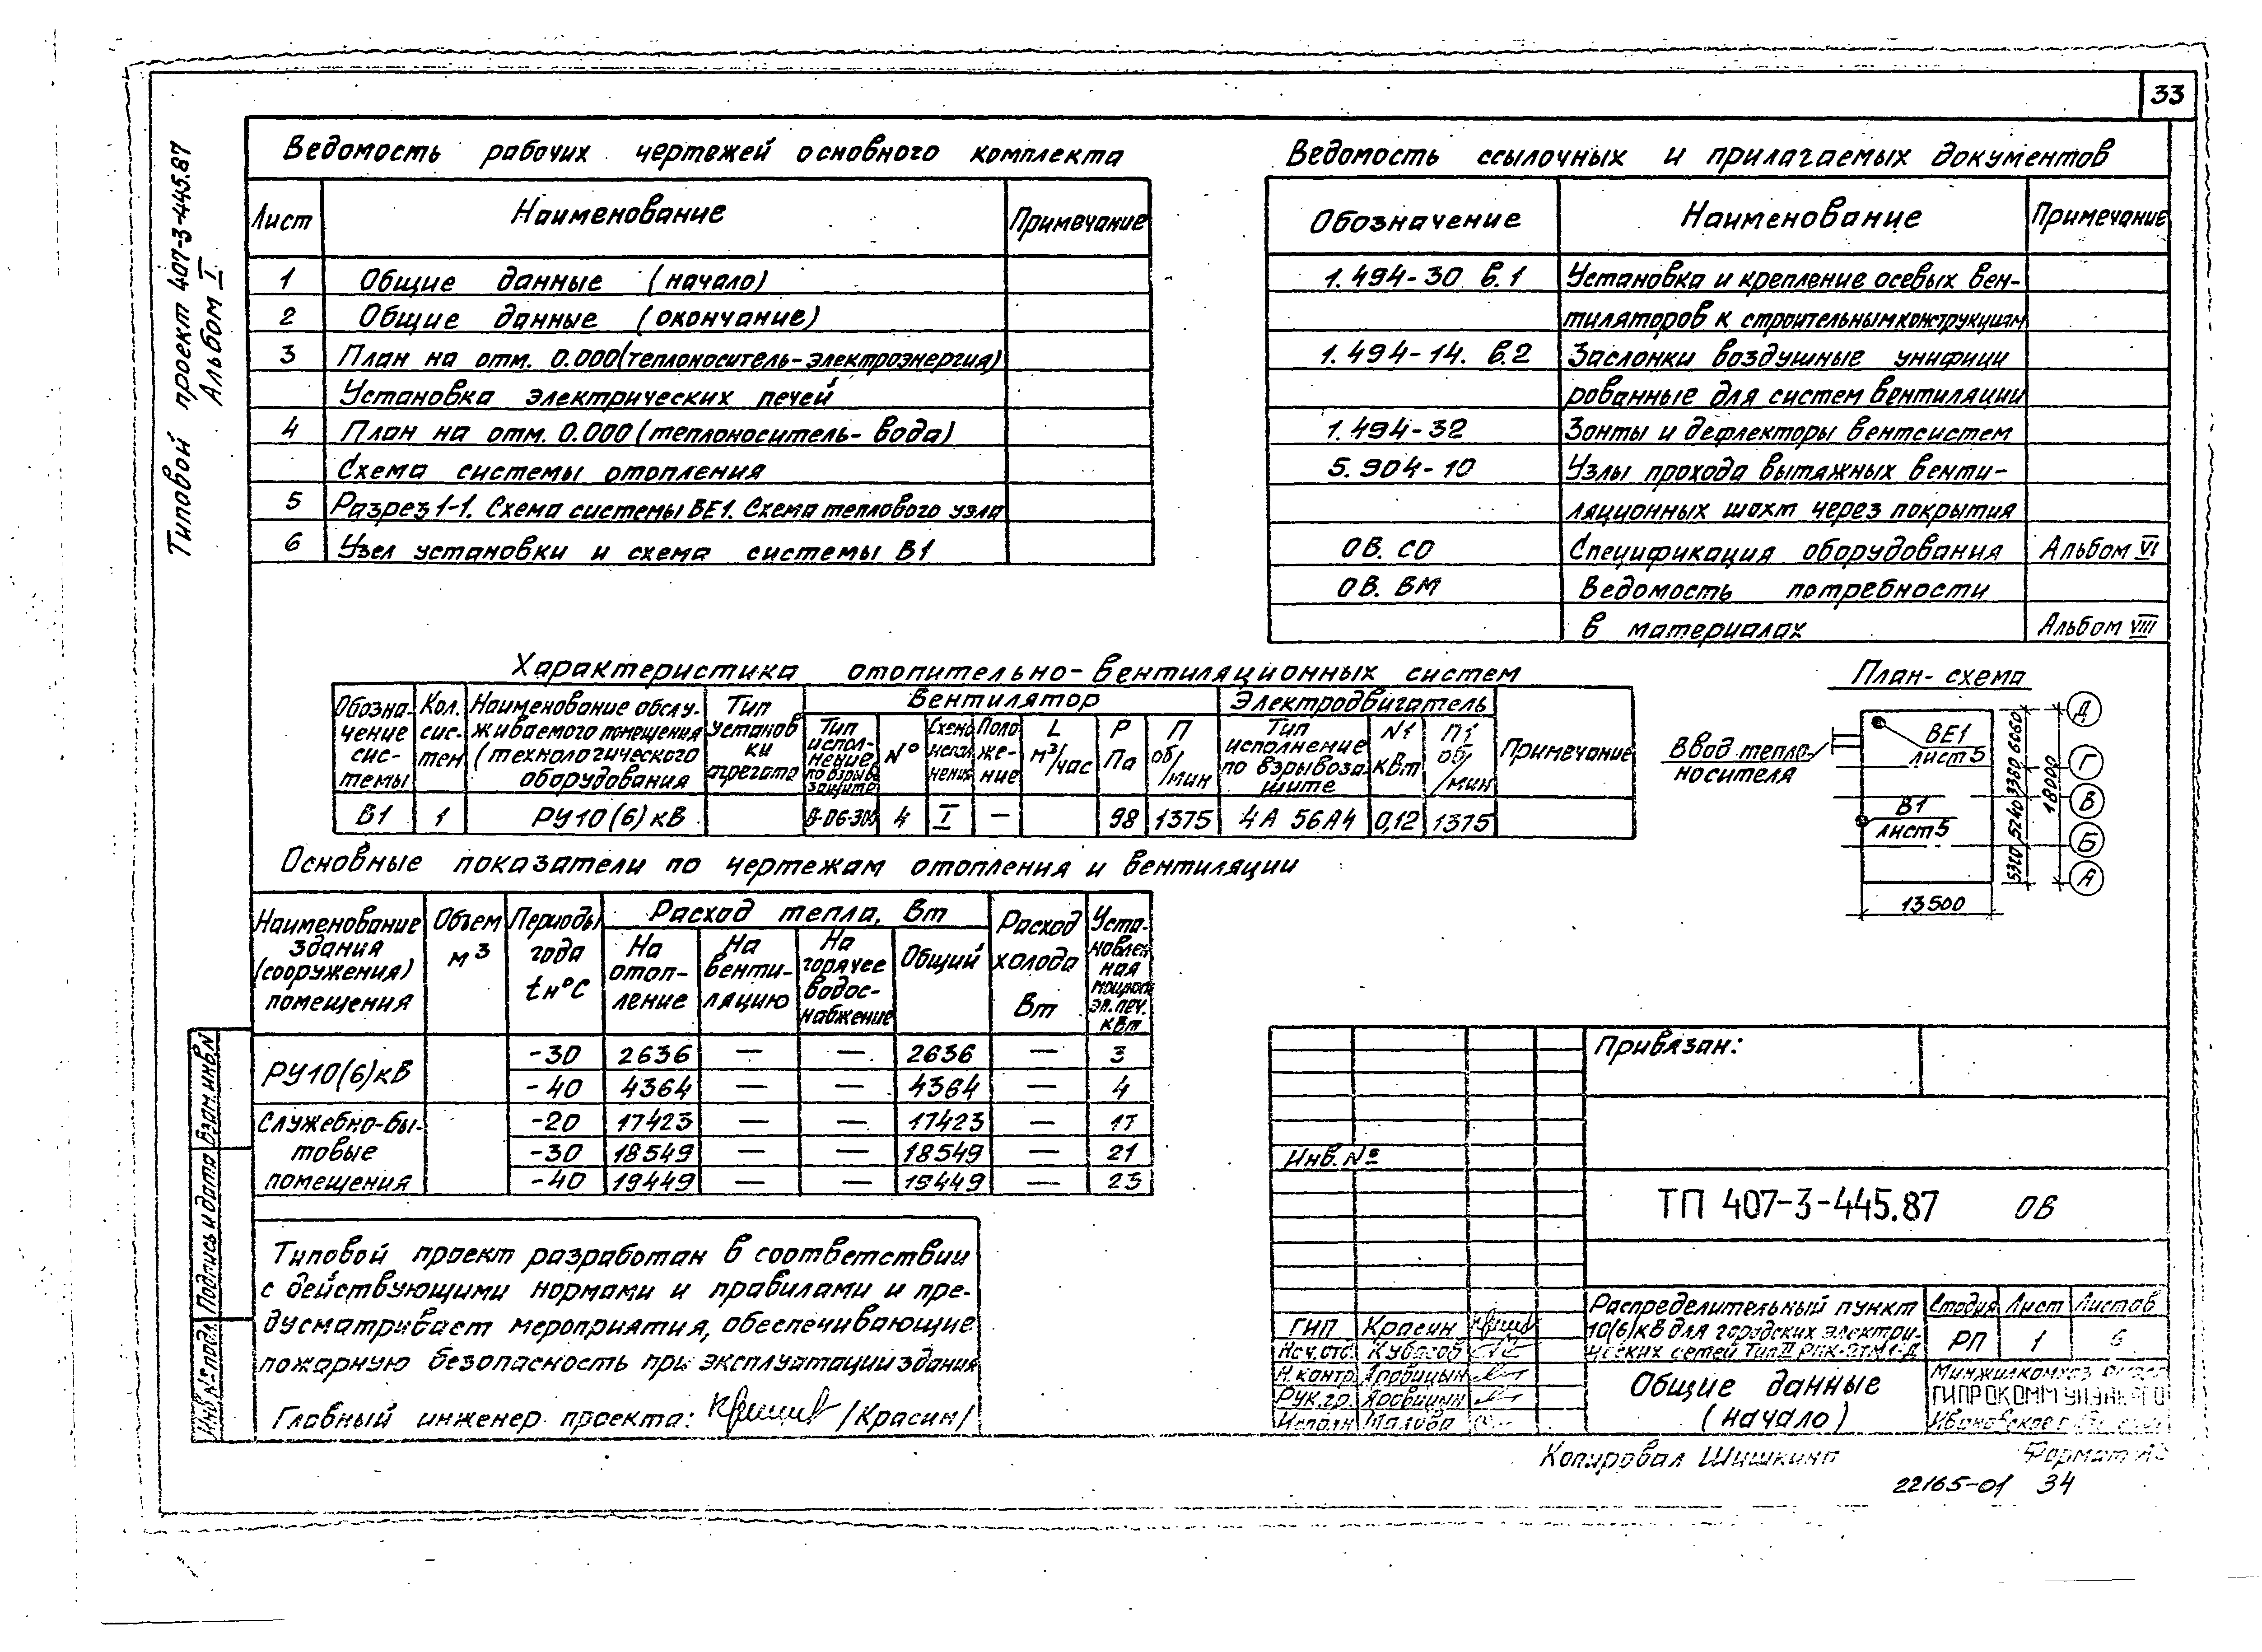 33
Типовой проект 407-3-445.87
Альбом I
Ведомость рабочих чертежей основного комплекта
Лист Наименование Примечание
1 Общие данные (начало)
2 Общие данные (окончание)
3 План на отм. 0.000 (теплоноситель-электроэнергия)
Установка электрических печей
4 План на отм. 0.000 (теплоноситель-вода)
Схема системы отопления
5 Разрез 1-1. Схема системы ВЕ1. Схема теплового узла
6 Узел установки и схема системы В1
Ведомость ссылочных и прилагаемых документов
Обозначение Наименование Примечание
1.494-30 в.1 Установка и крепление осевых вен-
тиляторов к строительным конструкциям
1.494-14. в.2 Заслонки воздушные унифици
рованные для систем вентиляции
1.494-32 Зонты и дефлекторы вентсистем
5.904-10 Узлы прохода вытяжных венти-
ляционных шахт через покрытия
ОВ. СО Спецификация оборудования Альбом VI
ОВ. ВМ Ведомость потребности
в материалах Альбом VIII
Характеристика отопительно-вентиляционных систем
Обозна-
чение
сис-
темы
Кол.
сис-
тем
Наименование обслу-
живаемого помещения
(технологического
оборудования
Тип
установ
ки
агрегата
Вентилятор
Тип
испол-
нение
по взрыво
защите
№
Схема
испол
нения
Поло
же-
ние
L
м³/час
Р
Па
П
об/мин
Электродвигатель
Тип
исполнение
по взрывоза-
щите
N1
кВт
П1
об/мин
Примечание
В1 1 РУ10(6)кВ В-06-300 4 I — 98 1375 4А 56А4 0,12 1375
План-схема
Ввод тепло-
носителя
ВЕ1
лист5
В1
лист5
6060
3380
5240
5320
18000
13500
Д
Г
В
Б
А
Основные показатели по чертежам отопления и вентиляции
Наименование
здания
(сооружения)
помещения
Объем
м3
Периоды
года
tн°С
Расход тепла, Вт
На
отоп-
ление
На
венти-
ляцию
На
горячее
водос-
набжение
Общий
Расход
холода
Вт
Уста-
новлен
ная
мощность
эл.печ.
кВт
РУ10(6)кВ -30 2636 — — 2636 — 3
-40 4364 — — 4364 — 4
Служебно-бы-
товые
помещения
-20 17423 — — 17423 — 17
-30 18549 — — 18549 — 21
-40 19449 — — 19449 — 23
Типовой проект разработан в соответствии
с действующими нормами и правилами и пре-
дусматривает мероприятия, обеспечивающие
пожарную безопасность при эксплуатации здания
Главный инженер проекта: /Красин/
Взам. инв.N
Подпись и дата
Инв.№ подл.
Привязан:
Инв. №
ТП 407-3-445.87 ОВ
ГИП Красин
Нач.отд. Кубасов
Н.контр. Яровицын
Рук.гр. Яровицын
Исполн.
Распределительный пункт
10(6)кВ для городских электри-
ческих сетей Тип II
Стадия Лист Листов
РП 1 6
Общие данные
(начало)
Минжилкомхоз
ГИПРОКОММУНЭНЕРГО
Ивановское
Копировал Шишкина
Формат А3
22165-01 34